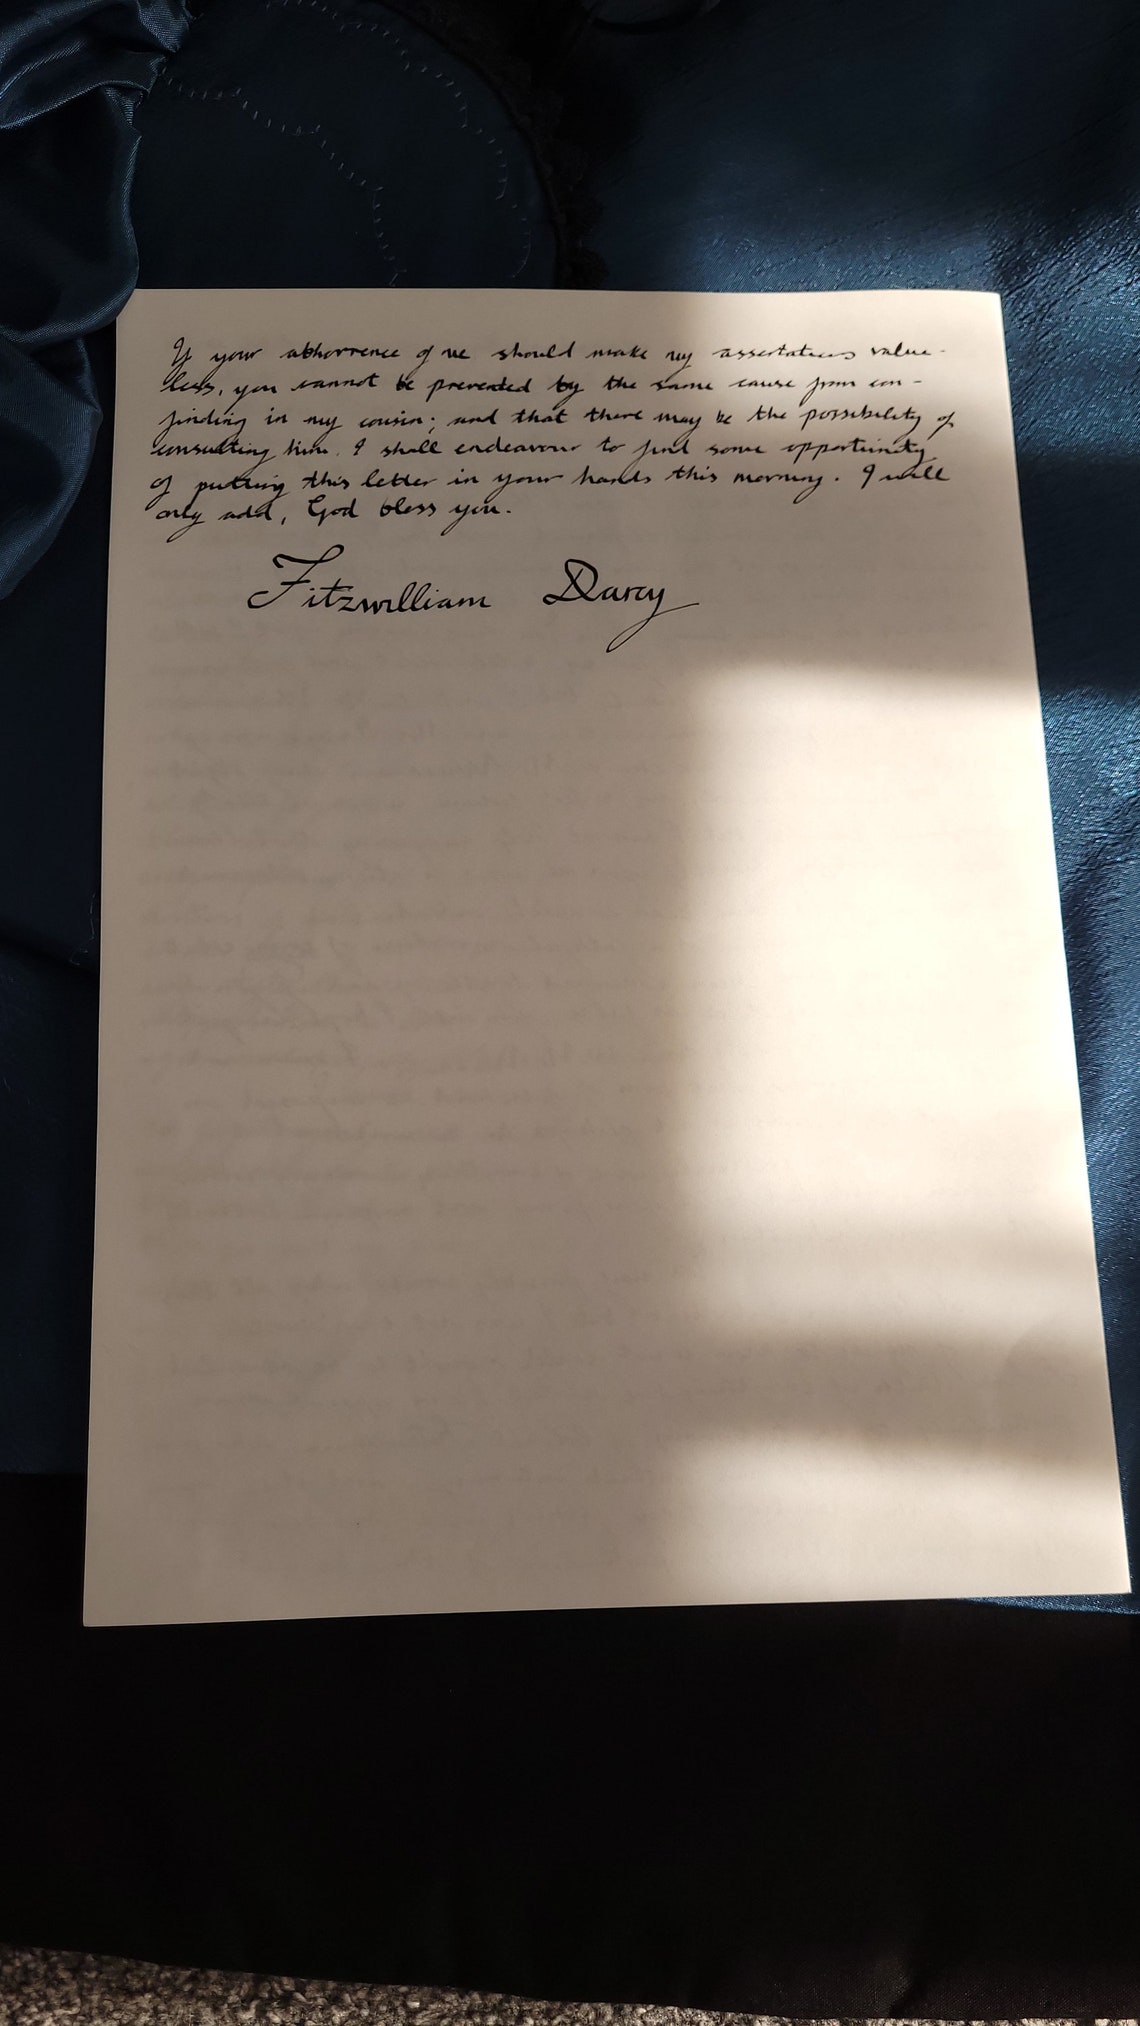 If your abhorrence of me should make my assertations value-
less, you cannot be prevented by the same cause from con-
finding in my cousin; and that there may be the possibility of
consulting him. I shall endeavour to find some opportunity
of putting this letter in your hands this morning. I will
only add, God bless you.
Fitzwilliam Darcy